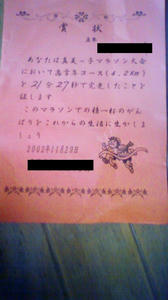 賞状
あなたは真美ヶ丘マラソン大会
において高学年コース(4.2km)
を21分27秒で完走したことを
証します
このマラソンでの精一杯のがん
ばりをこれからの生活に生かしま
しょう
2002年11月29日